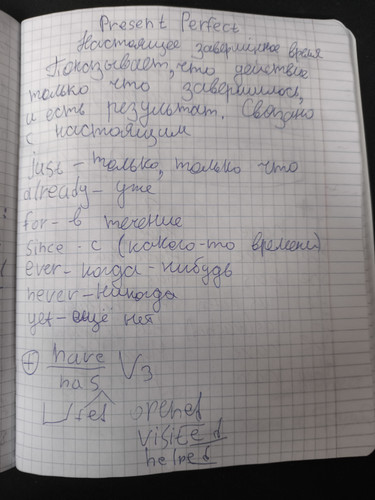 Present Perfect
Настоящее завершенное время
Показывает, что действие
только что завершилось,
и есть результат. Связано
с настоящим
just - только, только что
already - уже
for - в течение
since - с (какого-то времени)
ever - когда-нибудь
never - никогда
yet - ещё нет
+ have V3
has
visited
helped